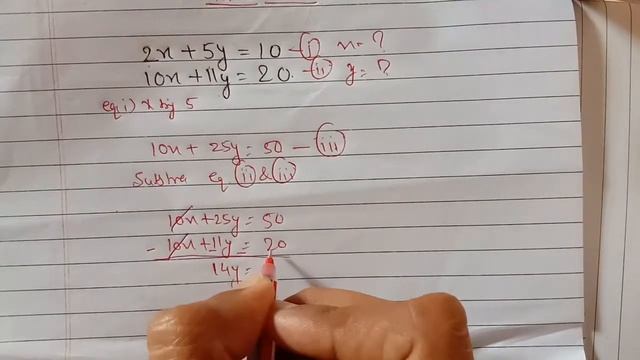 2x + 5y = 10 - (i) x = ?
10x + 11y = 20. - (ii) y = ?
eq i) x by 5
10x + 25y = 50 - (iii)
eq (ii) & (iii)
10x + 25y = 50
- 10x + 11y = 20
14y =